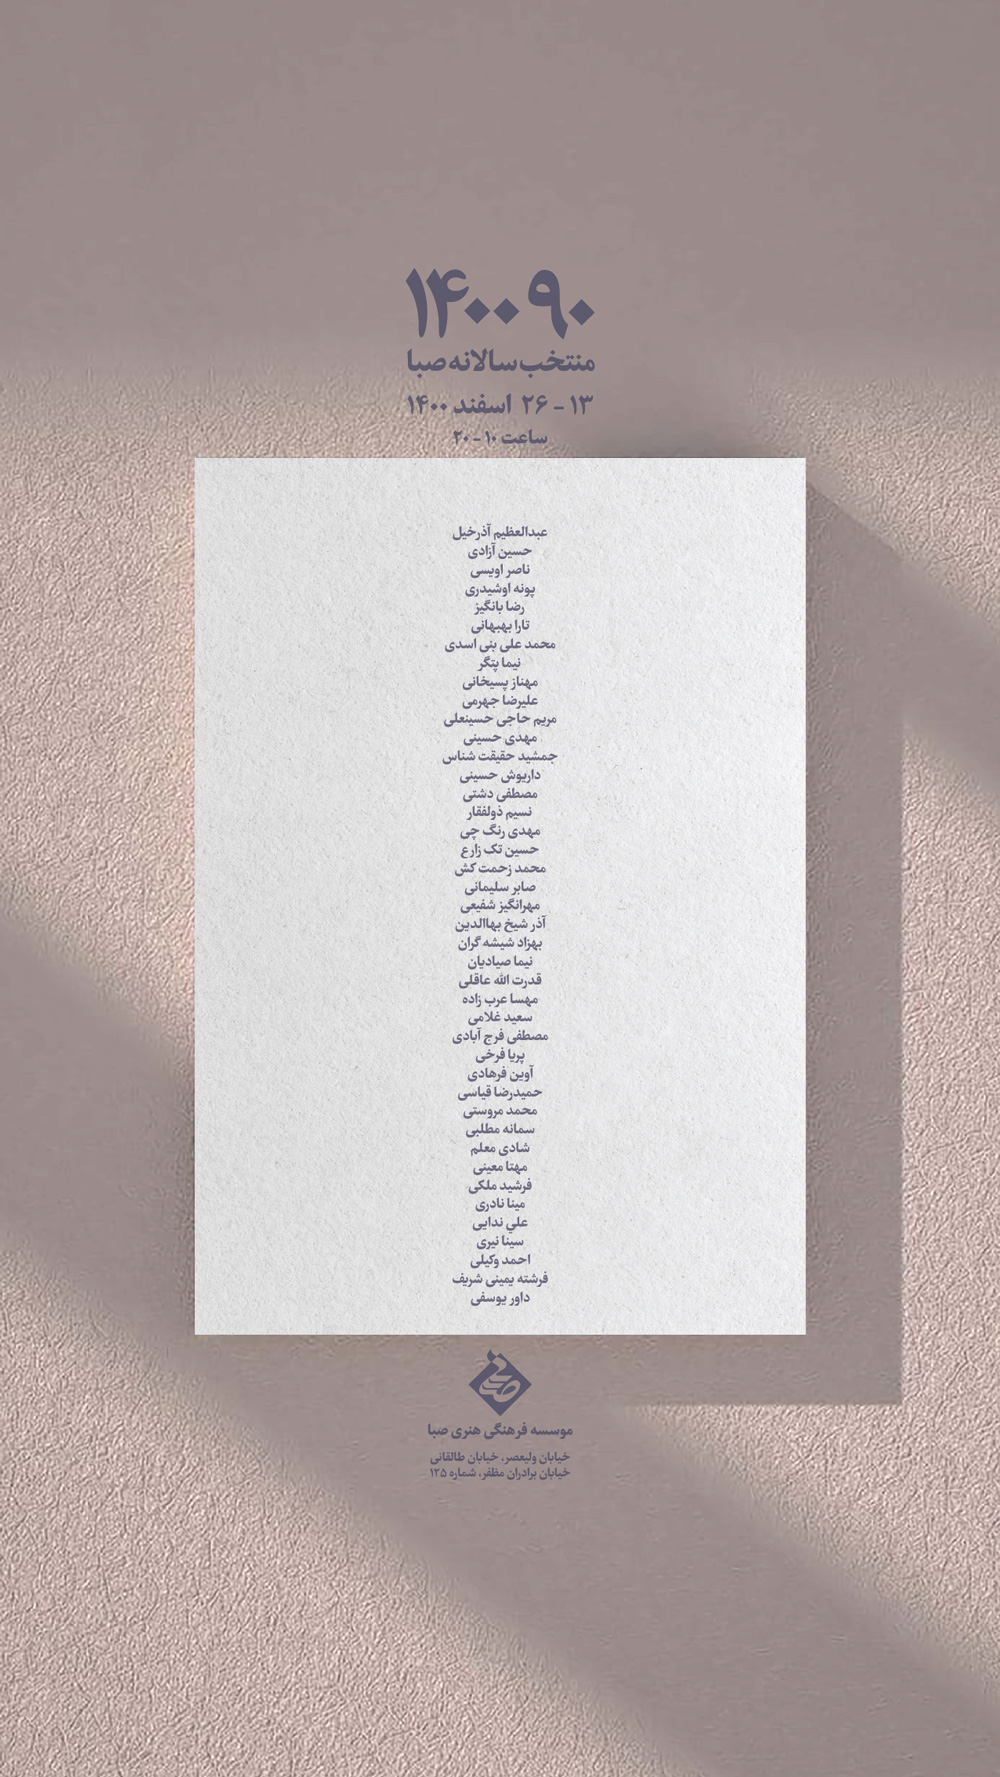 ۹۰ ۱۴۰۰
منتخب سالانه صبا
۱۳ - ۲۶ اسفند ۱۴۰۰
ساعت ۱۰ - ۲۰
عبدالعظیم آذرخیل
حسین آزادی
ناصر اویسی
پونه اوشیدری
رضا بانگیز
تارا بهبهانی
محمد علی بنی اسدی
نیما پتگر
مهناز پسیخانی
علیرضا جهرمی
مریم حاجی حسینعلی
مهدی حسینی
جمشید حقیقت شناس
داریوش حسینی
مصطفی دشتی
نسیم ذولفقار
مهدی رنگ چی
حسین تک زارع
محمد زحمت کش
صابر سلیمانی
مهرانگیز شفیعی
آذر شیخ بهاالدین
بهزاد شیشه گران
نیما صیادیان
قدرت الله عاقلی
مهسا عرب زاده
سعید غلامی
مصطفی فرج آبادی
پریا فرخی
آوین فرهادی
حمیدرضا قیاسی
محمد مروستی
سمانه مطلبی
شادی معلم
مهتا معینی
فرشید ملکی
مینا نادری
علي ندایی
سینا نیری
احمد وکیلی
فرشته یمینی شریف
داور یوسفی
صبا
موسسه فرهنگی هنری صبا
خیابان ولیعصر، خیابان طالقانی
خیابان برادران مظفر، شماره ۱۲۵